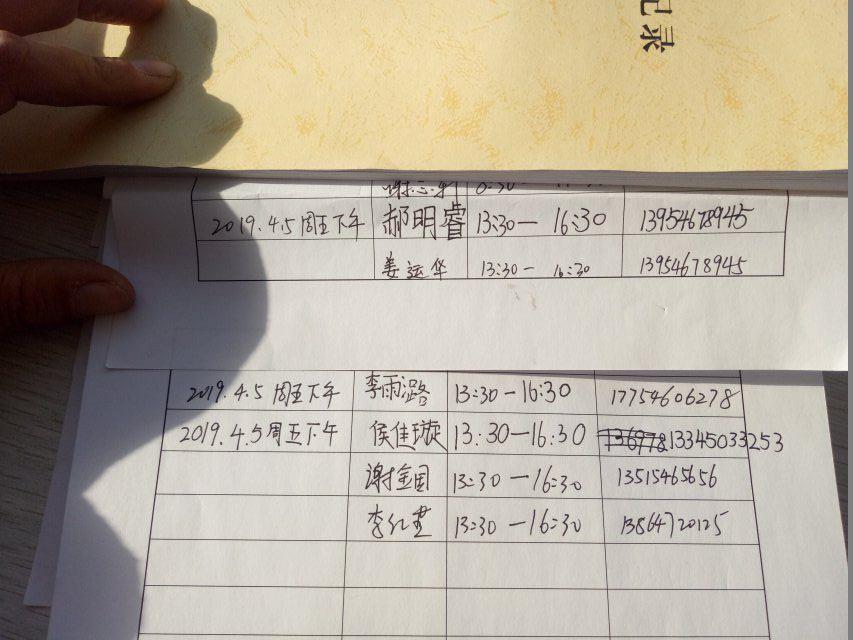 记录
2019.4.5周五下午 郝明睿 13:30— 16:30 13954678945
姜运华 13:30— 16:30 13954678945
2019.4.5 周五下午 李雨潞 13:30—16:30 17754606278
2019.4.5周五下午 侯佳璇 13:30—16:30 13345033253
谢金国 13:30—16:30 13515465656
13:30—16:30 13864720125